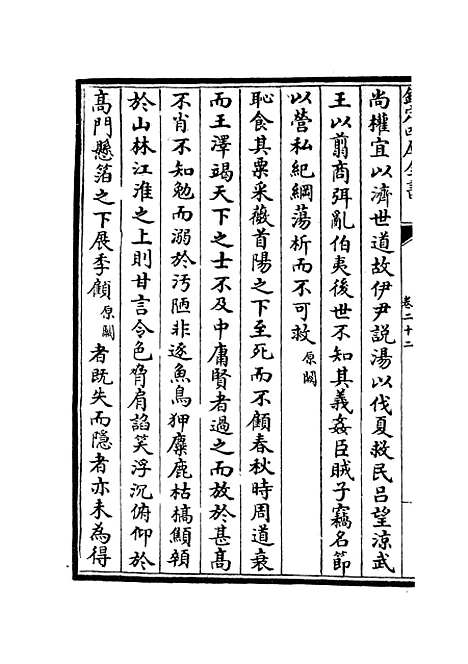 欽定四庫全書
卷二十二
尚權宜以濟世道故伊尹説湯以伐夏救民吕望涼武
王以翦商弭亂伯夷後世不知其義姦臣賊子竊名節
以營私紀綱蕩析而不可救原闕
恥食其粟采薇首陽之下至死而不顧春秋時周道衰
而王澤竭天下之士不及中庸賢者過之而放於甚高
不肖不知勉而溺於汚陋非逐魚鳥狎麋鹿枯槁顛顇
於山林江淮之上則甘言令色脅肩諂笑浮沉俯仰於
高門懸箔之下展季顧原闕者既失而隱者亦未為得